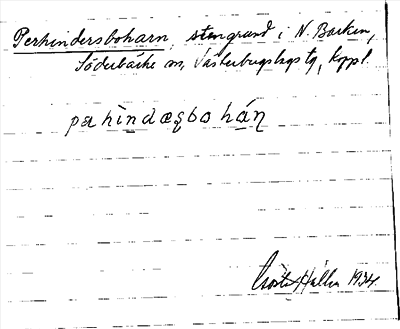 Perhindersboharn, stengrund i N. Barken,
Söderbärke sn, Västerbergslags tg, Koppl.
pærhìndæʂbohán̥
Hallen 1934.